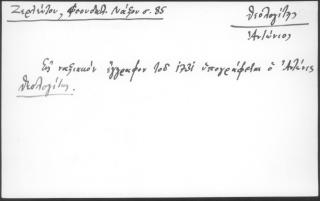 Ζερλέντου, Φεουδαλ. Νάξου σ. 85
Θεολογίτης
Ἀντώνιος
Εἰς ναξιακὸν ἔγγραφον τοῦ 1731 ὑπογράφεται ὁ Ἀντώνις
Θεολογίτης.